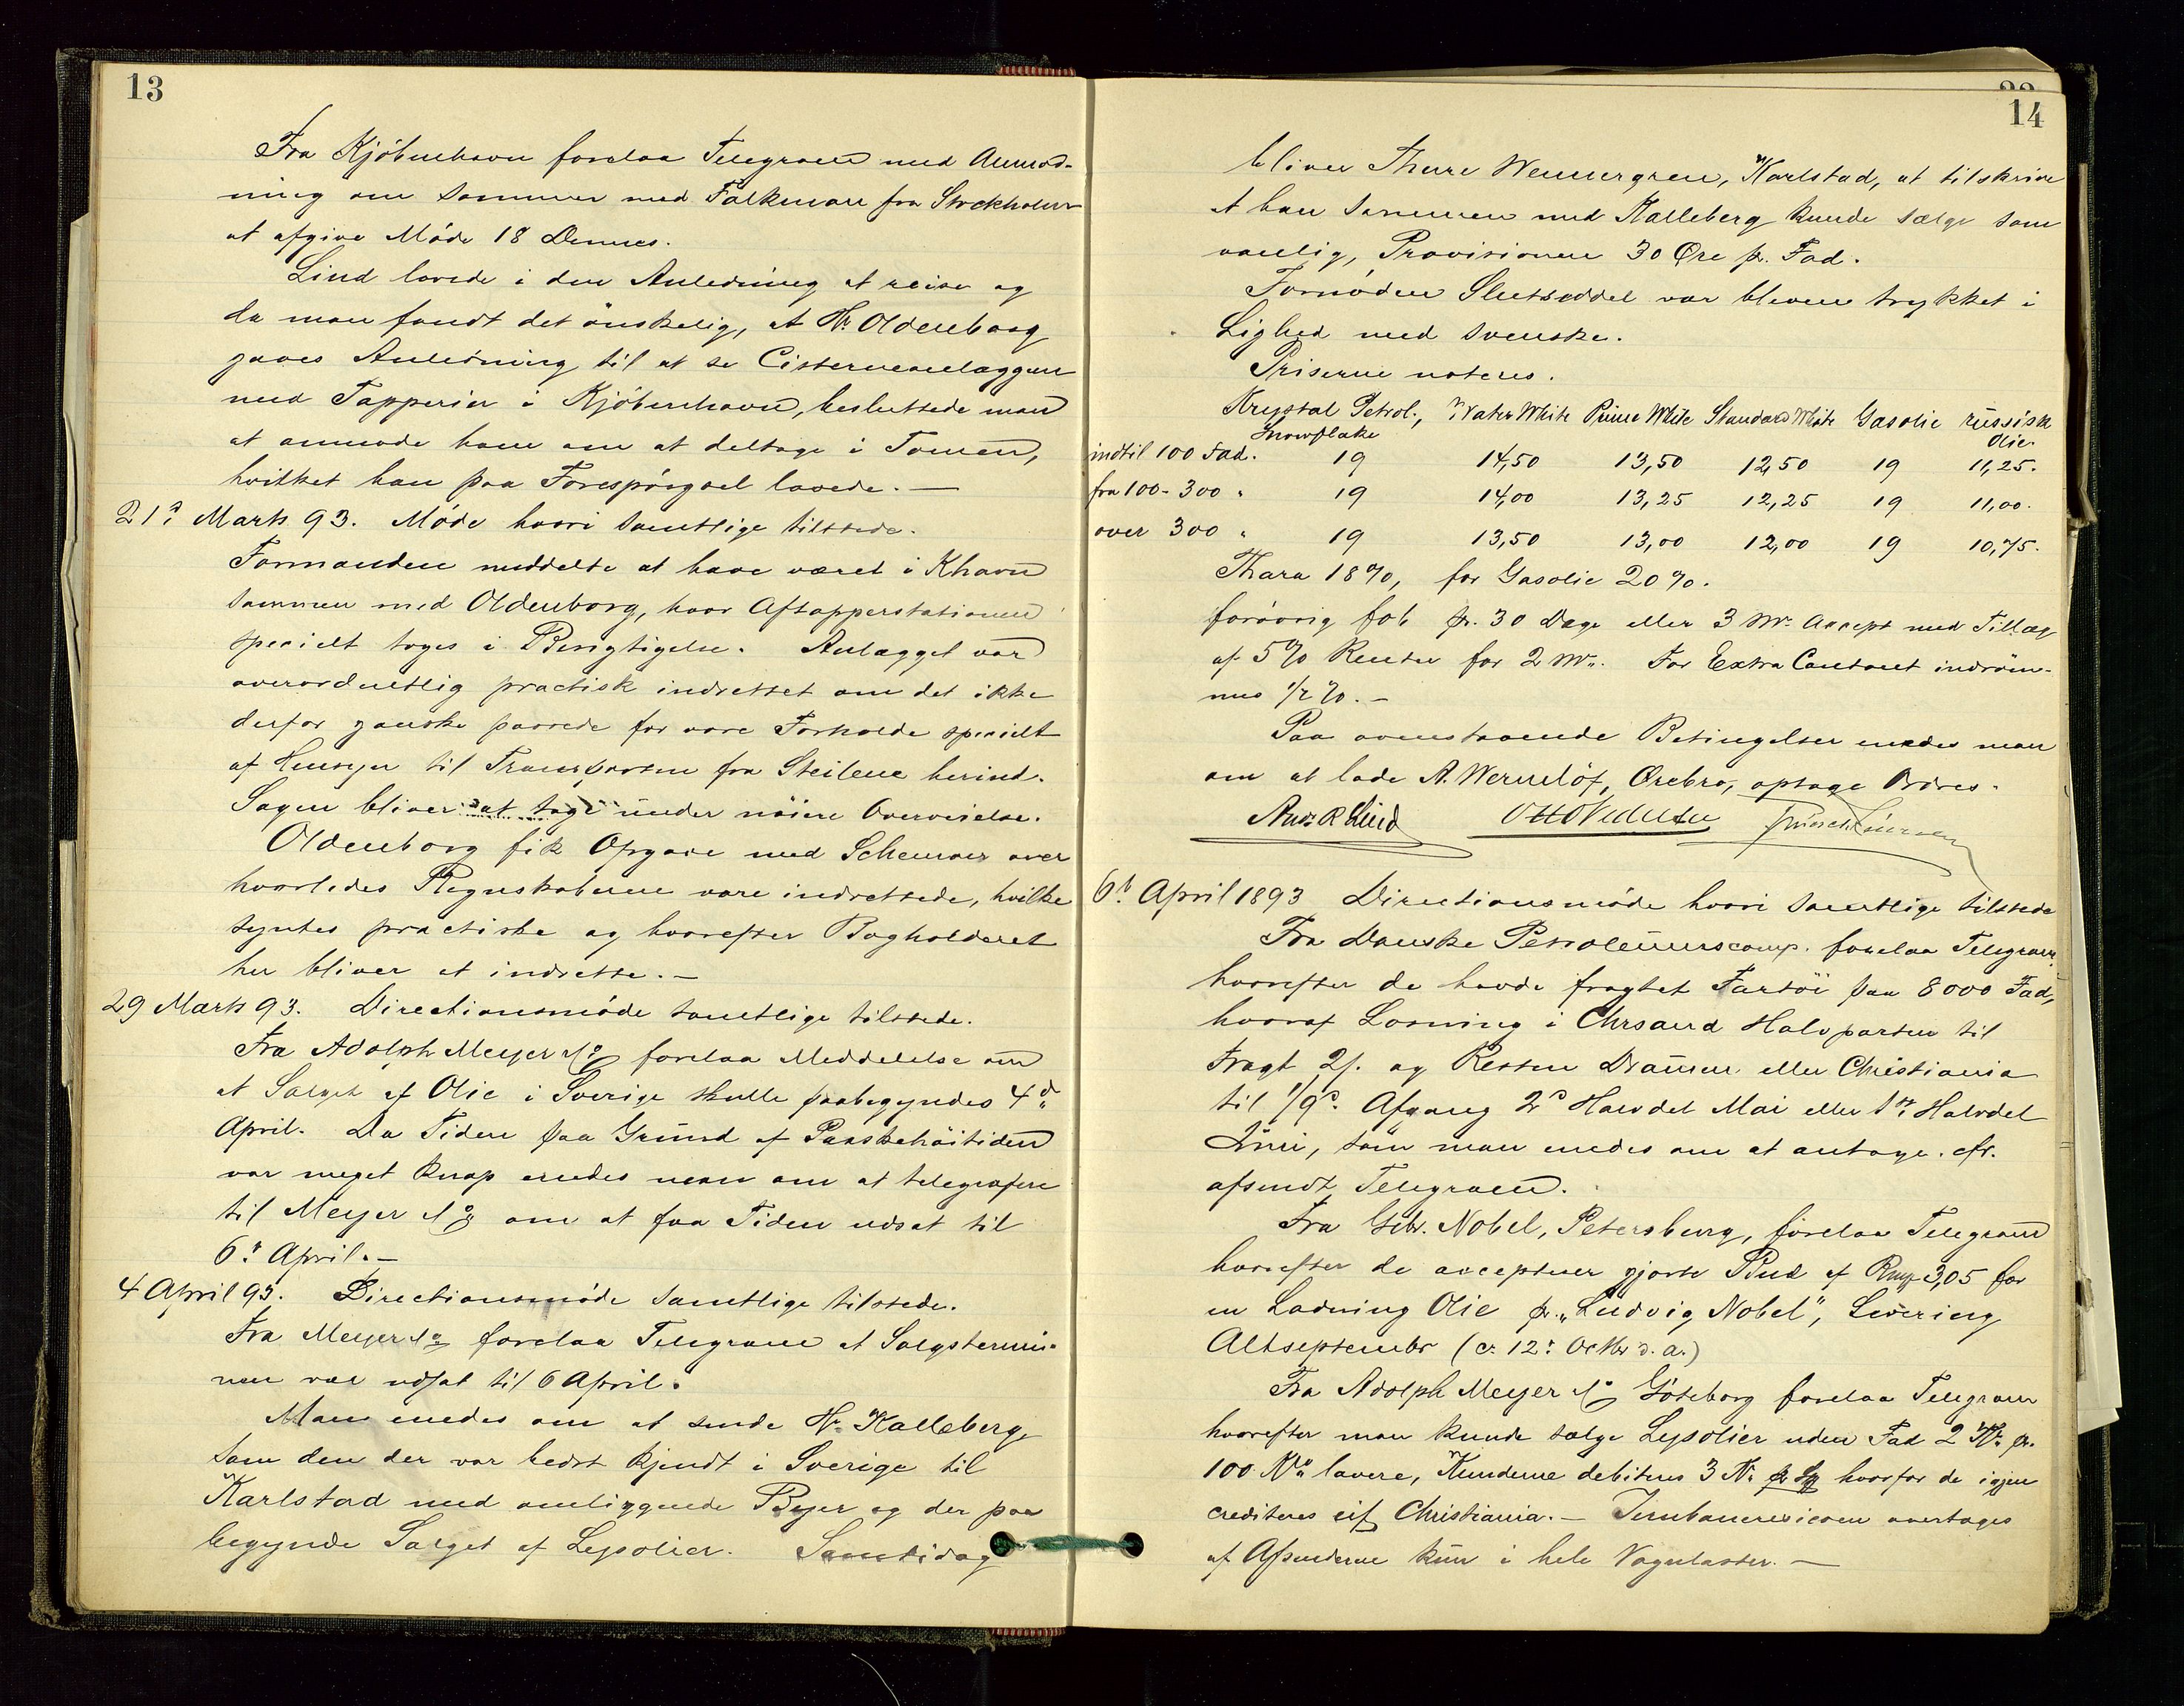 13
Fra Kjöbenhavn forelaa Telegram med Anmod-
ning om sammen med Falkman fra Stockholm
at afgive Möde 18 Dennes.
Lind lovede i den Anledning at reise og
da man fandt det önskelig, at Hr. Oldenborg
gaves Anledning til at se Cisterneanlæggene
med Tapperier i Kjöbenhavn, besluttede man
at anmode ham om at deltage i Touren,
hvilket han paa Forespörgsel lovede. —
21d. Marts 93. Möde hvori samtlige tilstede.
Formanden meddelte at have været i Khavn
sammen med Oldenborg, hvor Aftapperstationen
specielt toges i Besigtigelse. Anlægget var
overordentlig practisk indrettet om det ikke
derfor ganske passede for vore Forholde specielt
af Hensyn til Transporten fra Steilene herind.
Sagen bliver at tage under nöiere Overveielse.
Oldenborg fik Opgave med Schemaer over
hvorledes Regnskaberne vare indrettede, hvilke
syntes practiske og hvorefter Bogholderiet
her bliver at indrette. —
29 Marts 93. Directionsmöde samtlige tilstede.
Fra Adolph Meyer & Co forelaa Meddelelse om
at Salget af Olie i Sverige skulle paabegyndes 4d.
April. Da Tiden paa Grund af Paaskehöitiden
var meget knap enedes man om at telegrafere
til Meyer & Co om at faa Tiden udsat til
6t. April. —
4 April 93. Directionsmöde samtlige tilstede.
Fra Meyer & Co forelaa Telegram at Salgstermi-
nen var udsat til 6 April.
Man enedes om at sende Hr. Kalleberg,
som den der var bedst kjendt i Sverige til
Karlstad med omliggende Byer og der paa
begynde Salget af Lysolier. Samtidag
14
bliver Thure Wennergren, Karlstad, at tilskrive
at han sammen med Kalleberg kunde sælge som
vanlig, Provisionen 30 Öre pr. Fad.
Fornöden Slutseddel var bleven trykket i
Lighed med svenske.
Priserne noteres.
Krystal Petrol., Water White Prime White Standard White Gasolie russisk
Snowflake Olie
indtil 100 Fad. 19 14,50 13,50 12,50 19 11,25.
fra 100-300 " 19 14,00 13,25 12,25 19 11,00.
over 300 " 19 13,50 13,00 12,00 19 10,75.
Thara 18%, for Gasolie 20%.
forövrig fob pr. 30 Dage eller 3 Mr. Accept med Tillæg
af 5% Renter for 2 Mr. For Extra Contant indröm-
mes 1/2 %. —
Paa ovenstaaende Betingelser enedes man
om at lade A. Wernelöf, Örebro, optage Ordres.
Lind
6t. April 1893 Directionsmöde hvori samtlige tilstede
Fra Danske Petroleumscomp. forelaa Telegram,
hvorefter de havde fragtet Fartöi paa 8000 Fad,
hvoraf Losning i Chrsand Halvparten til
Fragt 2/. og Resten Drammen eller Christiania
til 1/9d. Afgang 2d Halvdel Mai eller 1ste Halvdel
Juni, som man enedes om at antage. cfr.
afsendt Telegram.
Fra Gebr. Nobel, Petersburg, forelaa Telegram
hvorefter de accepterer gjorte Bud af Rmp 3,05 for
en Ladning Olie pr. "Ludvig Nobel", Levering
Altseptember (c. 12t Octbr d. a.)
Fra Adolph Meyer & Co Göteborg forelaa Telegram
hvorefter man kunde sælge Lysolier uden Fad 2 Kr. pr.
100 Ko lavere, Kunderne debiteres 3 Kr hvorfor de igjen
crediteres cif Christiania. — overtages
af Afsenderne kun i hele Vognlaster. —